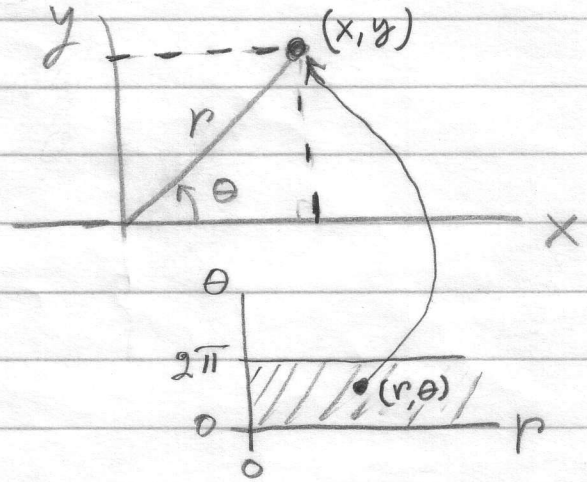 y
(x, y)
r
θ
x
θ
2π
(r,θ)
0
r
0